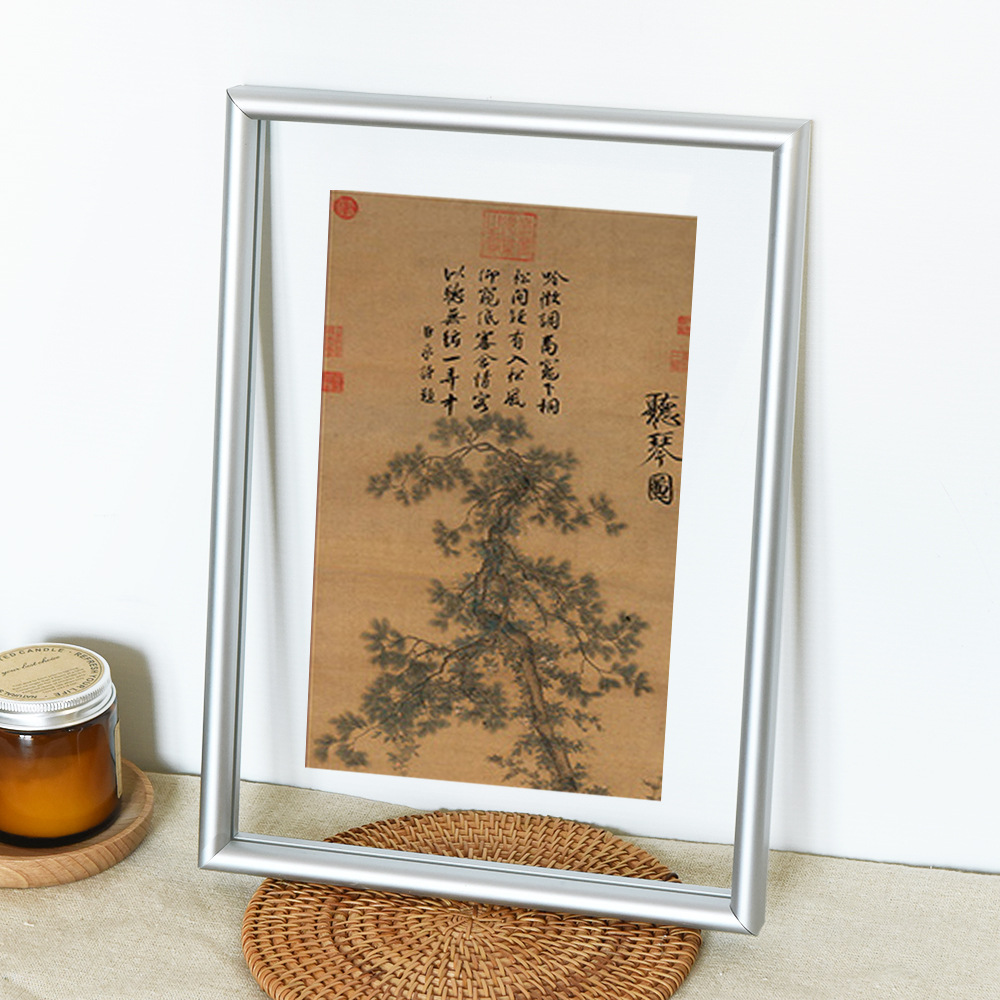 聽琴圖
吟徵調商竈下桐
松間疑有入松風
仰窺低審含情客
似聽無絃一弄中
臣京謹題
CANDLE · REFRESH YOUR LIFE ·
your best choice